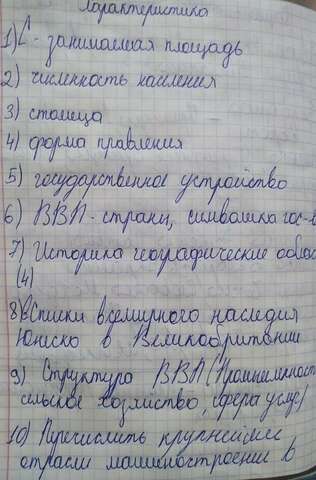 Характеристика
1) S - занимаемая площадь
2) численность населения
3) столица
4) форма правления
5) государственное устройство
6) ВВП - страны, символика гос-
7) Историко географические облас
(4)
8) Списки всемирного наследия
Юнеско в Великобритании
9) Структура ВВП (Промышленност
сельское хозяйство, сфера услуг)
10) Перечислить крупнейшие
отрасли машиностроении в